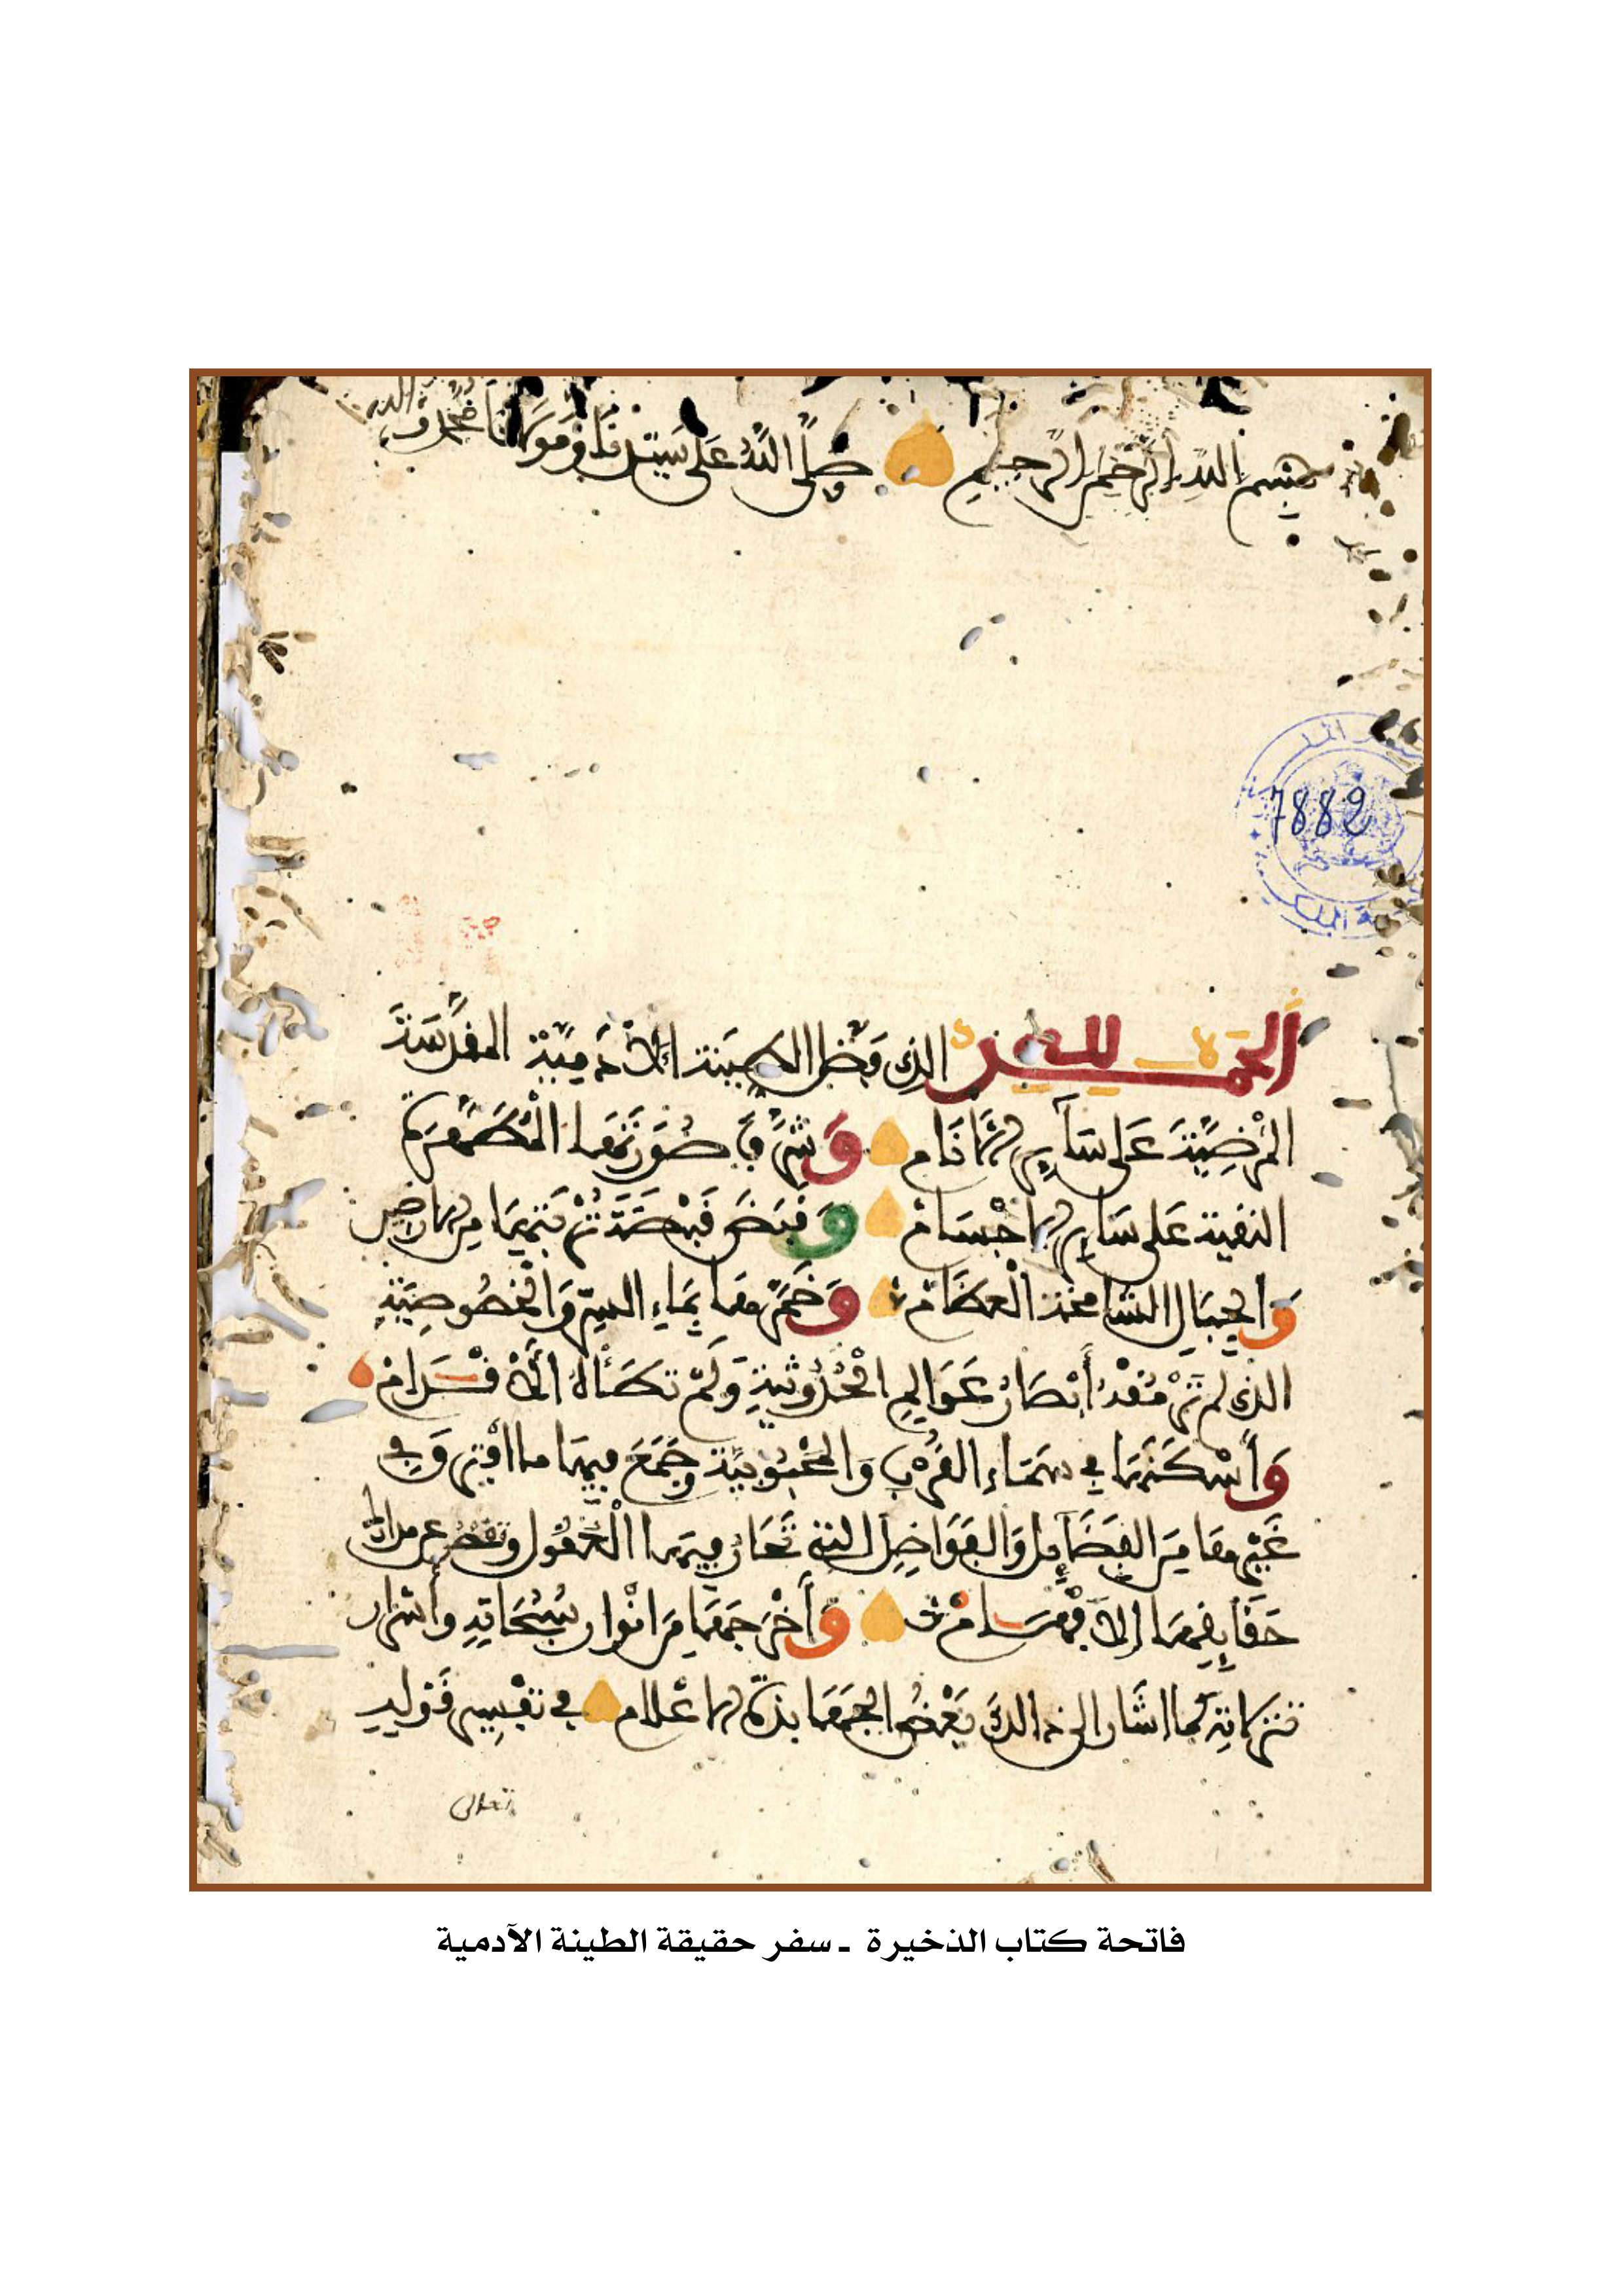 بسم الله الرحمن الرحيم وصلى الله على سيدنا ومولانا محمد و
7882
الحمد لله الذي فضل الطينة الآدمية المقدسة
المرضية على ساير الأنام وشرف صورتها المطهرة
النقية على ساير الأجسام وقبض قبضة تربتها من الأراضي
والجبال الشامخة العظام وخمرها بماء السر والخصوصية
الذي لم ترمقه أبصار عوالم الحدوثية ولم تطأه الأقدام
وأسكنها في سماء القرب والمحبوبية وجمع فيها ما افترق في
غيرها من الفضايل والفواضل التي تحار فيها العقول وتقصر عن
حقايقها الأفهام وأخرجها من أنوار سبحاته وأسرار
تنزلاته كما أشار إلى ذالك بعض الجهابذة الأعلام في تفسير قوله
تعالى
فاتحة كتاب الذخيرة ـ سفر حقيقة الطينة الآدمية